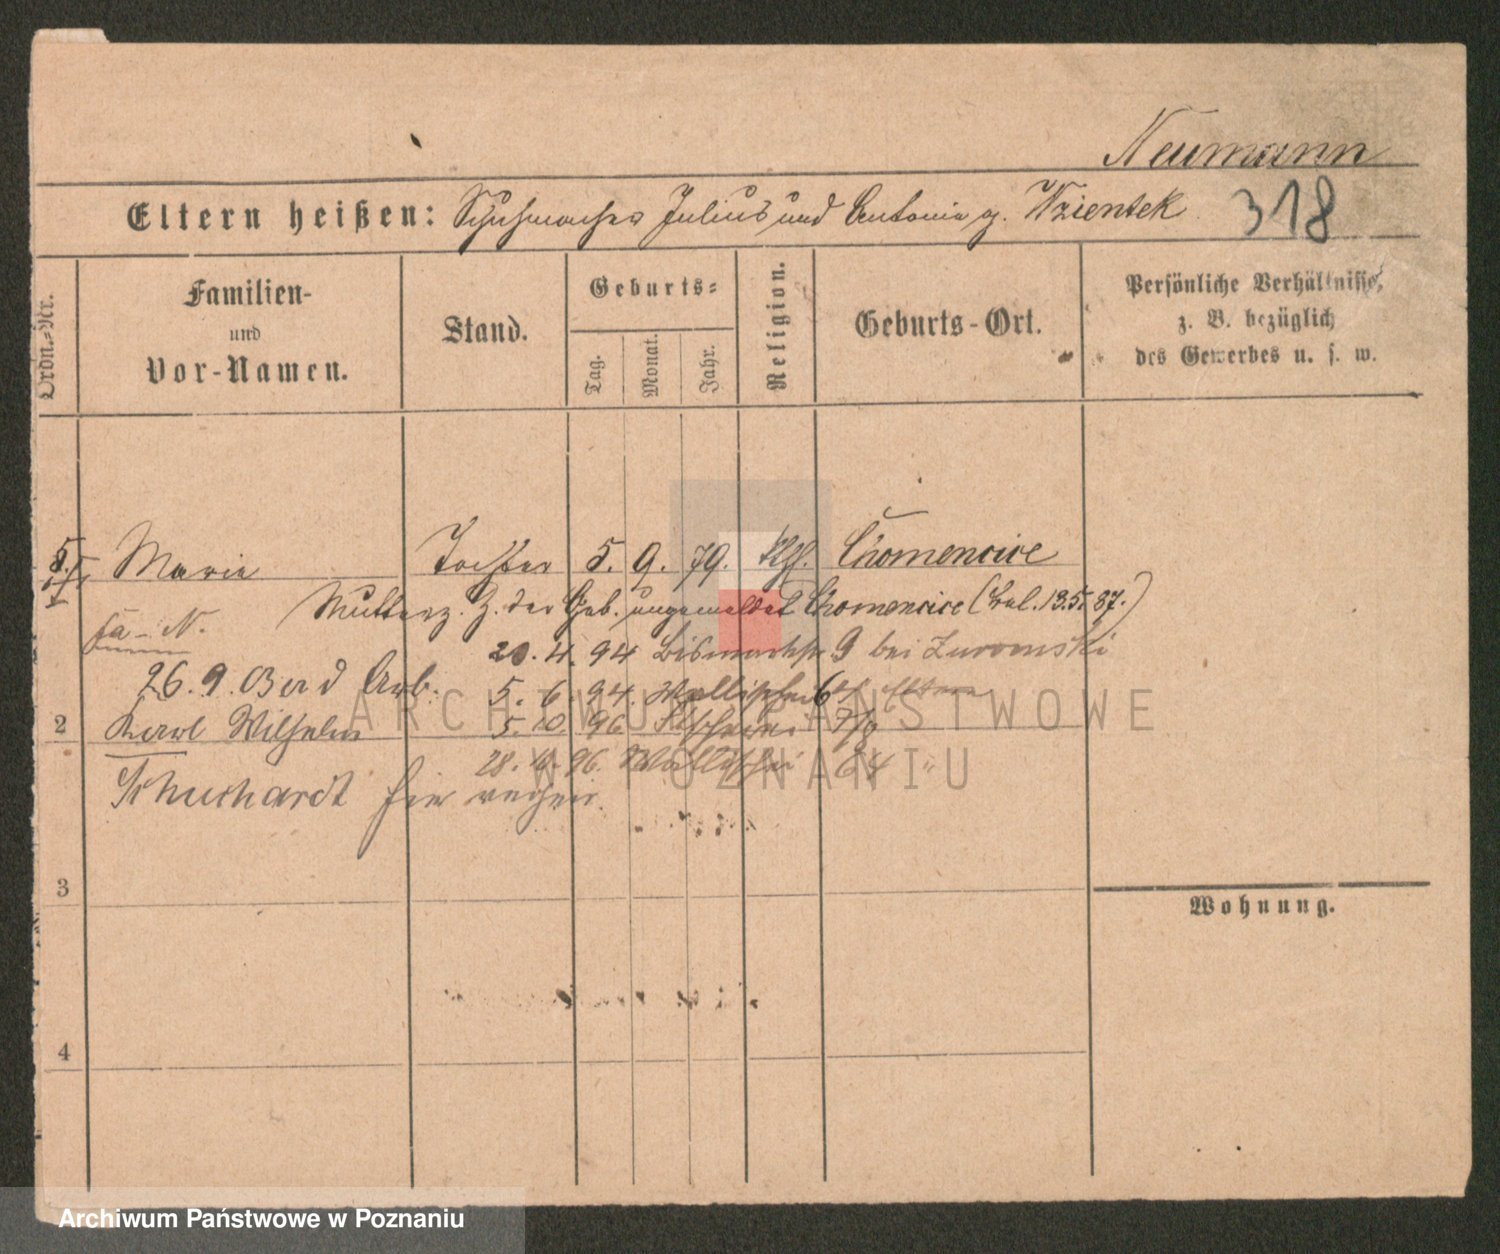 Neumann
Eltern heißen: Schuhmacher Julius und Antonie g. Wzientek
318
Ordn.-Nr.
Familien-
und
Vor-Namen.
Stand.
Geburts-
Tag.
Monat.
Jahr.
Religion.
Geburts-Ort.
Persönliche Verhältnisse,
z. B. bezüglich
des Gewerbes u. s. w.
Marie Tochter 5. 9. 79. Kth. Chomencice
Mutter z. Z. der Geb. ungemeldet Chomencice (Bel. 13.5.87.)
20.4.94 Bismarckstr 9 bei Zuromski
26.9.03
5. 6. 94. Wallischei 64 Eltern
2 Karl Wilhelm
5. 10. 96 7/8
Schuchardt
28. 96. Wallischei 64 "
3
Wohnung.
4
ARCHIWUM PAŃSTWOWE
W POZNANIU
Archiwum Państwowe w Poznaniu